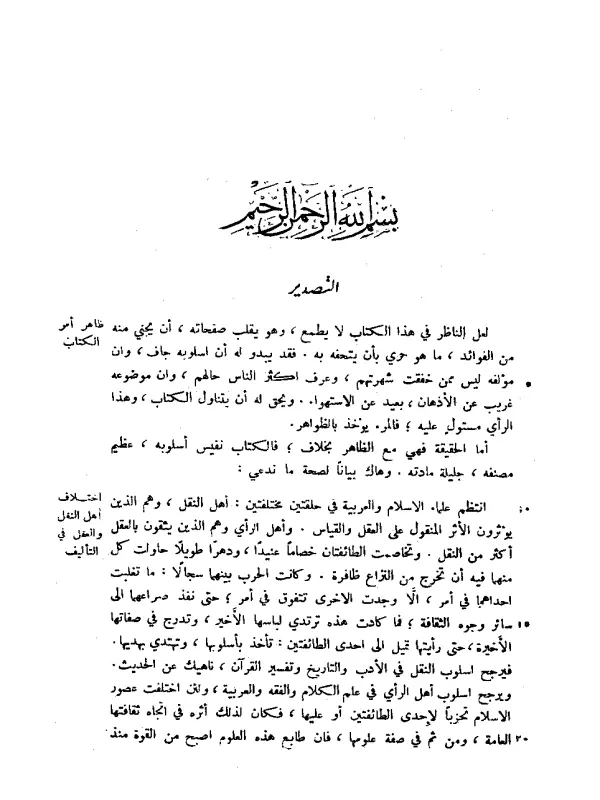 بسم الله الرحمن الرحيم
التصدير
لعل الناظر في هذا الكتاب لا يطمع ، وهو يقلب صفحاته ، أن يجني منه
ظاهر أمر
من الفوائد ، ما هو حري بأن يتحفه به . فقد يبدو له أن اسلوبه جاف ، وان
الكتاب
مؤلفه ليس ممن خفقت شهرتهم ، وعرف اكثر الناس حالهم ، وان موضوعه
غريب عن الأذهان ، بعيد عن الاستهواء . ويحق له أن يتناول الكتاب ، وهذا
الرأي مستول عليه ؛ فالمرء يؤخذ بالظواهر.
أما الحقيقة فهي مع الظاهر بخلاف ؛ فالكتاب نفيس أسلوبه ، عظيم
مصنفه ، جليلة مادته . وهاك بياناً لصحة ما ندعي :
انتظم علماء الاسلام والعربية في حلقتين مختلفتين : أهل النقل ، وهم الذين
١٠
اختلاف
يؤثرون الأثر المنقول على العقل والقياس . وأهل الرأي وهم الذين يثقون بالعقل
أهل النقل
أكثر من النقل . وتخاصمت الطائفتان خصاماً عنيدًا ، ودهرًا طويلًا حاولت كل
والعقل في
منهما فيه أن تخرج من القراع ظافرة . وكانت الحرب بينهما سجالًا : ما تغلبت
التأليف
احداهما في أمر ، الّا وجدت الاخرى تتفوق في أمر ؛ حتى نفذ صراعهما الى
١٥ سائر وجوه الثقافة ؛ فما كادت هذه ترتدي لباسها الأخير ، وتدرج في صفاتها
الأخيرة ، حتى رأيتها تميل الى احدى الطائفتين : تأخذ بأسلوبها ، وتهتدي بهديها.
فيرجح اسلوب النقل في الأدب والتاريخ وتفسير القرآن ، ناهيك عن الحديث.
ويرجح اسلوب أهل الرأي في علم الكلام والفقه والعربية ، ولئن اختلفت عصور
الاسلام تحزباً لإحدى الطائفتين أو عليها ، فكان لذلك أثره في اتجاه ثقافتها
٢٠ العامة ، ومن ثم في صفة علومها ، فان طابع هذه العلوم اصبح من القوة منذ